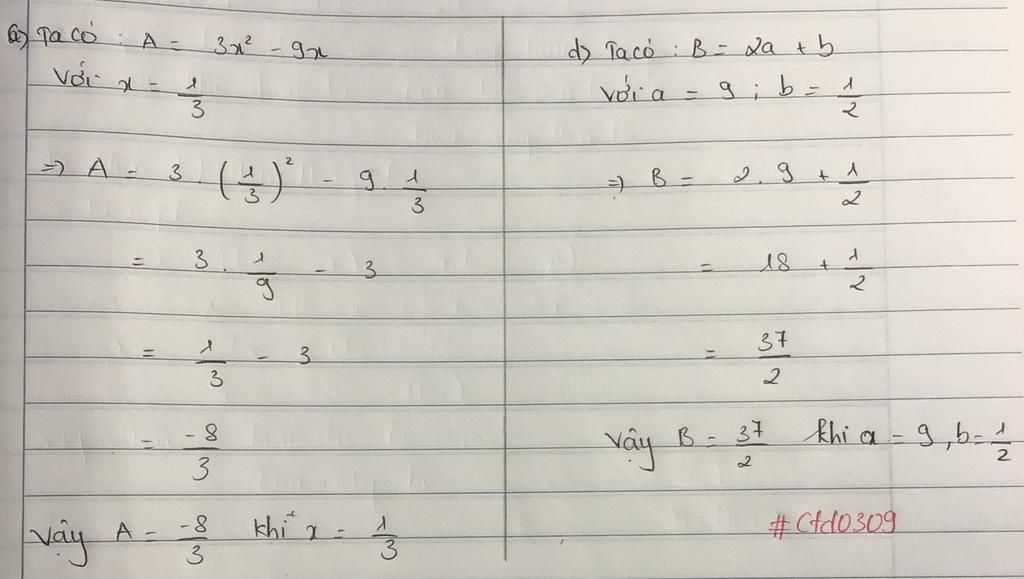 c) Ta có : A = 3x² - 9x
Với x = 1/3
=> A = 3 . (1/3)² - 9 . 1/3
= 3 . 1/9 - 3
= 1/3 - 3
= -8/3
Vậy A = -8/3 khi x = 1/3
d) Ta có : B = 2a + b
Với a = 9 ; b = 1/2
=> B = 2 . 9 + 1/2
= 18 + 1/2
= 37/2
Vậy B = 37/2 khi a = 9 , b = 1/2
#Ctd0309